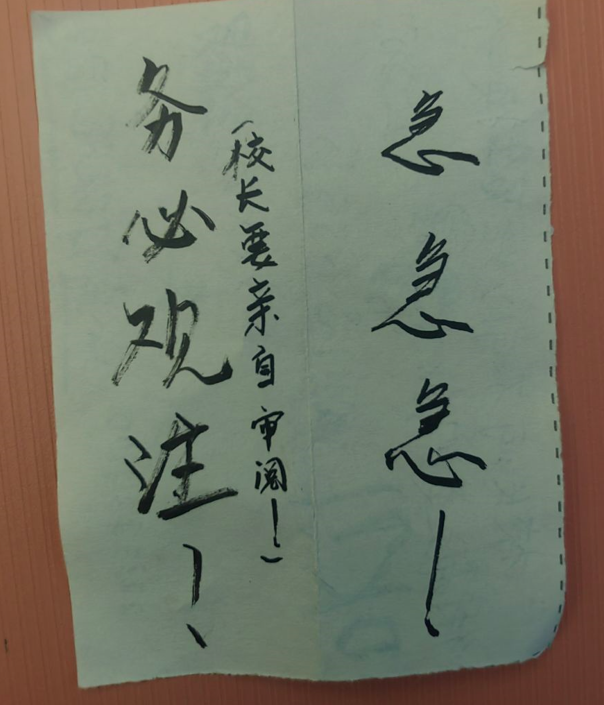 急急急！
（校长要亲自审阅！）
务必观注！